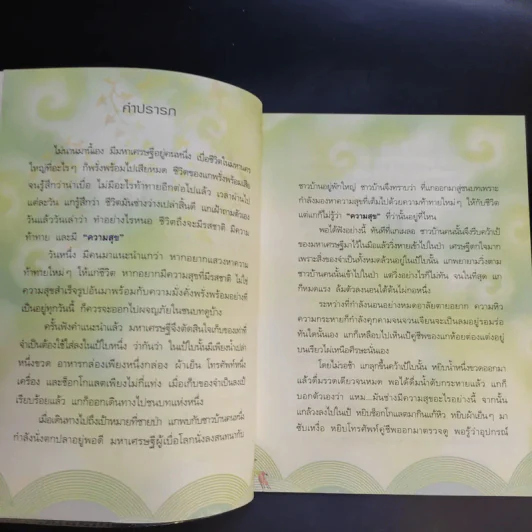 คำปรารภ
ไม่นานมานี้เอง มีมหาเศรษฐีอยู่คนหนึ่ง เบื่อชีวิตในมหานคร
ใหญ่ที่อะไรๆ ก็พรั่งพร้อมไปเสียหมด ชีวิตของแกพรั่งพร้อมเสีย
จนรู้สึกว่าน่าเบื่อ ไม่มีอะไรท้าทายอีกต่อไปแล้ว เวลาผ่านไป
แต่ละวัน แกรู้สึกว่า ชีวิตมันช่างว่างเปล่าสิ้นดี แกเฝ้าถามตัวเอง
วันแล้ววันเล่าว่า ทำอย่างไรหนอ ชีวิตถึงจะมีรสชาติ มีความ
ท้าทาย และมี "ความสุข"
วันหนึ่ง มีคนมาแนะนำแกว่า หากอยากแสวงหาความ
ท้าทายใหม่ๆ ให้แก่ชีวิต หากอยากมีความสุขที่มีรสชาติ ไม่ใช่
ความสุขสำเร็จรูปอันมาพร้อมกับความมั่งคั่งพรั่งพร้อมอย่างที่
เป็นอยู่ทุกวันนี้ ก็ควรจะออกไปผจญภัยในชนบทดูบ้าง
ครั้นฟังคำแนะนำแล้ว มหาเศรษฐีจึงตัดสินใจเก็บของเท่าที่
จำเป็นต้องใช้ใส่ลงในเป้ใบหนึ่ง ว่ากันว่า ในเป้ใบนั้นมีเพียงน้ำเปล่า
หนึ่งขวด อาหารกล่องเพียงหนึ่งกล่อง ผ้าเย็น โทรศัพท์หนึ่ง
เครื่อง และช็อกโกแลตเพียงไม่กี่แท่ง เมื่อเก็บของจำเป็นลงเป้
เรียบร้อยแล้ว แกก็ออกเดินทางไปชนบทแห่งหนึ่ง
เมื่อเดินทางไปถึงเป้าหมายที่ชายป่า แกพบกับชาวบ้านคนหนึ่ง
กำลังนั่งตกปลาอยู่พอดี มหาเศรษฐีผู้เบื่อโลกนั่งลงสนทนากับ
ชาวบ้านอยู่พักใหญ่ ชาวบ้านจึงทราบว่า ที่แกออกมาสู่ชนบทเพราะ
กำลังมองหาความสุขที่เต็มไปด้วยความท้าทายใหม่ๆ ให้กับชีวิต
แต่แกก็ไม่รู้ว่า "ความสุข" ที่ว่านั้นอยู่ที่ไหน
พอได้ฟังอย่างนี้ ทันทีที่แกเผลอ ชาวบ้านคนนั้นจึงรีบคว้าเป้
ของมหาเศรษฐีมาไว้ในมือแล้ววิ่งหายเข้าไปในป่า เศรษฐีตกใจมาก
เพราะสิ่งของจำเป็นทั้งหมดล้วนอยู่ในเป้ใบนั้น แกพยายามวิ่งตาม
ชาวบ้านคนนั้นเข้าไปในป่า แต่วิ่งอย่างไรก็ไม่ทัน จนในที่สุด แก
ก็หมดแรง ล้มตัวลงนอนใต้ต้นไม้กอหนึ่ง
ระหว่างที่กำลังนอนอย่างหมดอาลัยตายอยาก ความหิว
ความกระหายก็กำลังคุกคามจนจวนเจียนจะเป็นลมอยู่รอมร่อ
ทันใดนั้นเอง แกก็เหลือบไปเห็นเป้คู่ชีพของแกห้อยต่องแต่งอยู่
บนเรียวไผ่เหนือศีรษะนั่นเอง
โดยไม่รอช้า แกลุกขึ้นคว้าเป้ใบนั้น หยิบน้ำหนึ่งขวดออกมา
แล้วดื่มรวดเดียวจนหมด พอได้ดื่มน้ำดับกระหายแล้ว แกก็
บอกตัวเองว่า แหม...มันช่างมีความสุขอะไรอย่างนี้ จากนั้น
แกล้วงลงไปในเป้ หยิบช็อกโกแลตมากินแก้หิว หยิบผ้าเย็นๆ มา
ซับเหงื่อ หยิบโทรศัพท์คู่ชีพออกมาตรวจดู พอรู้ว่าอุปกรณ์